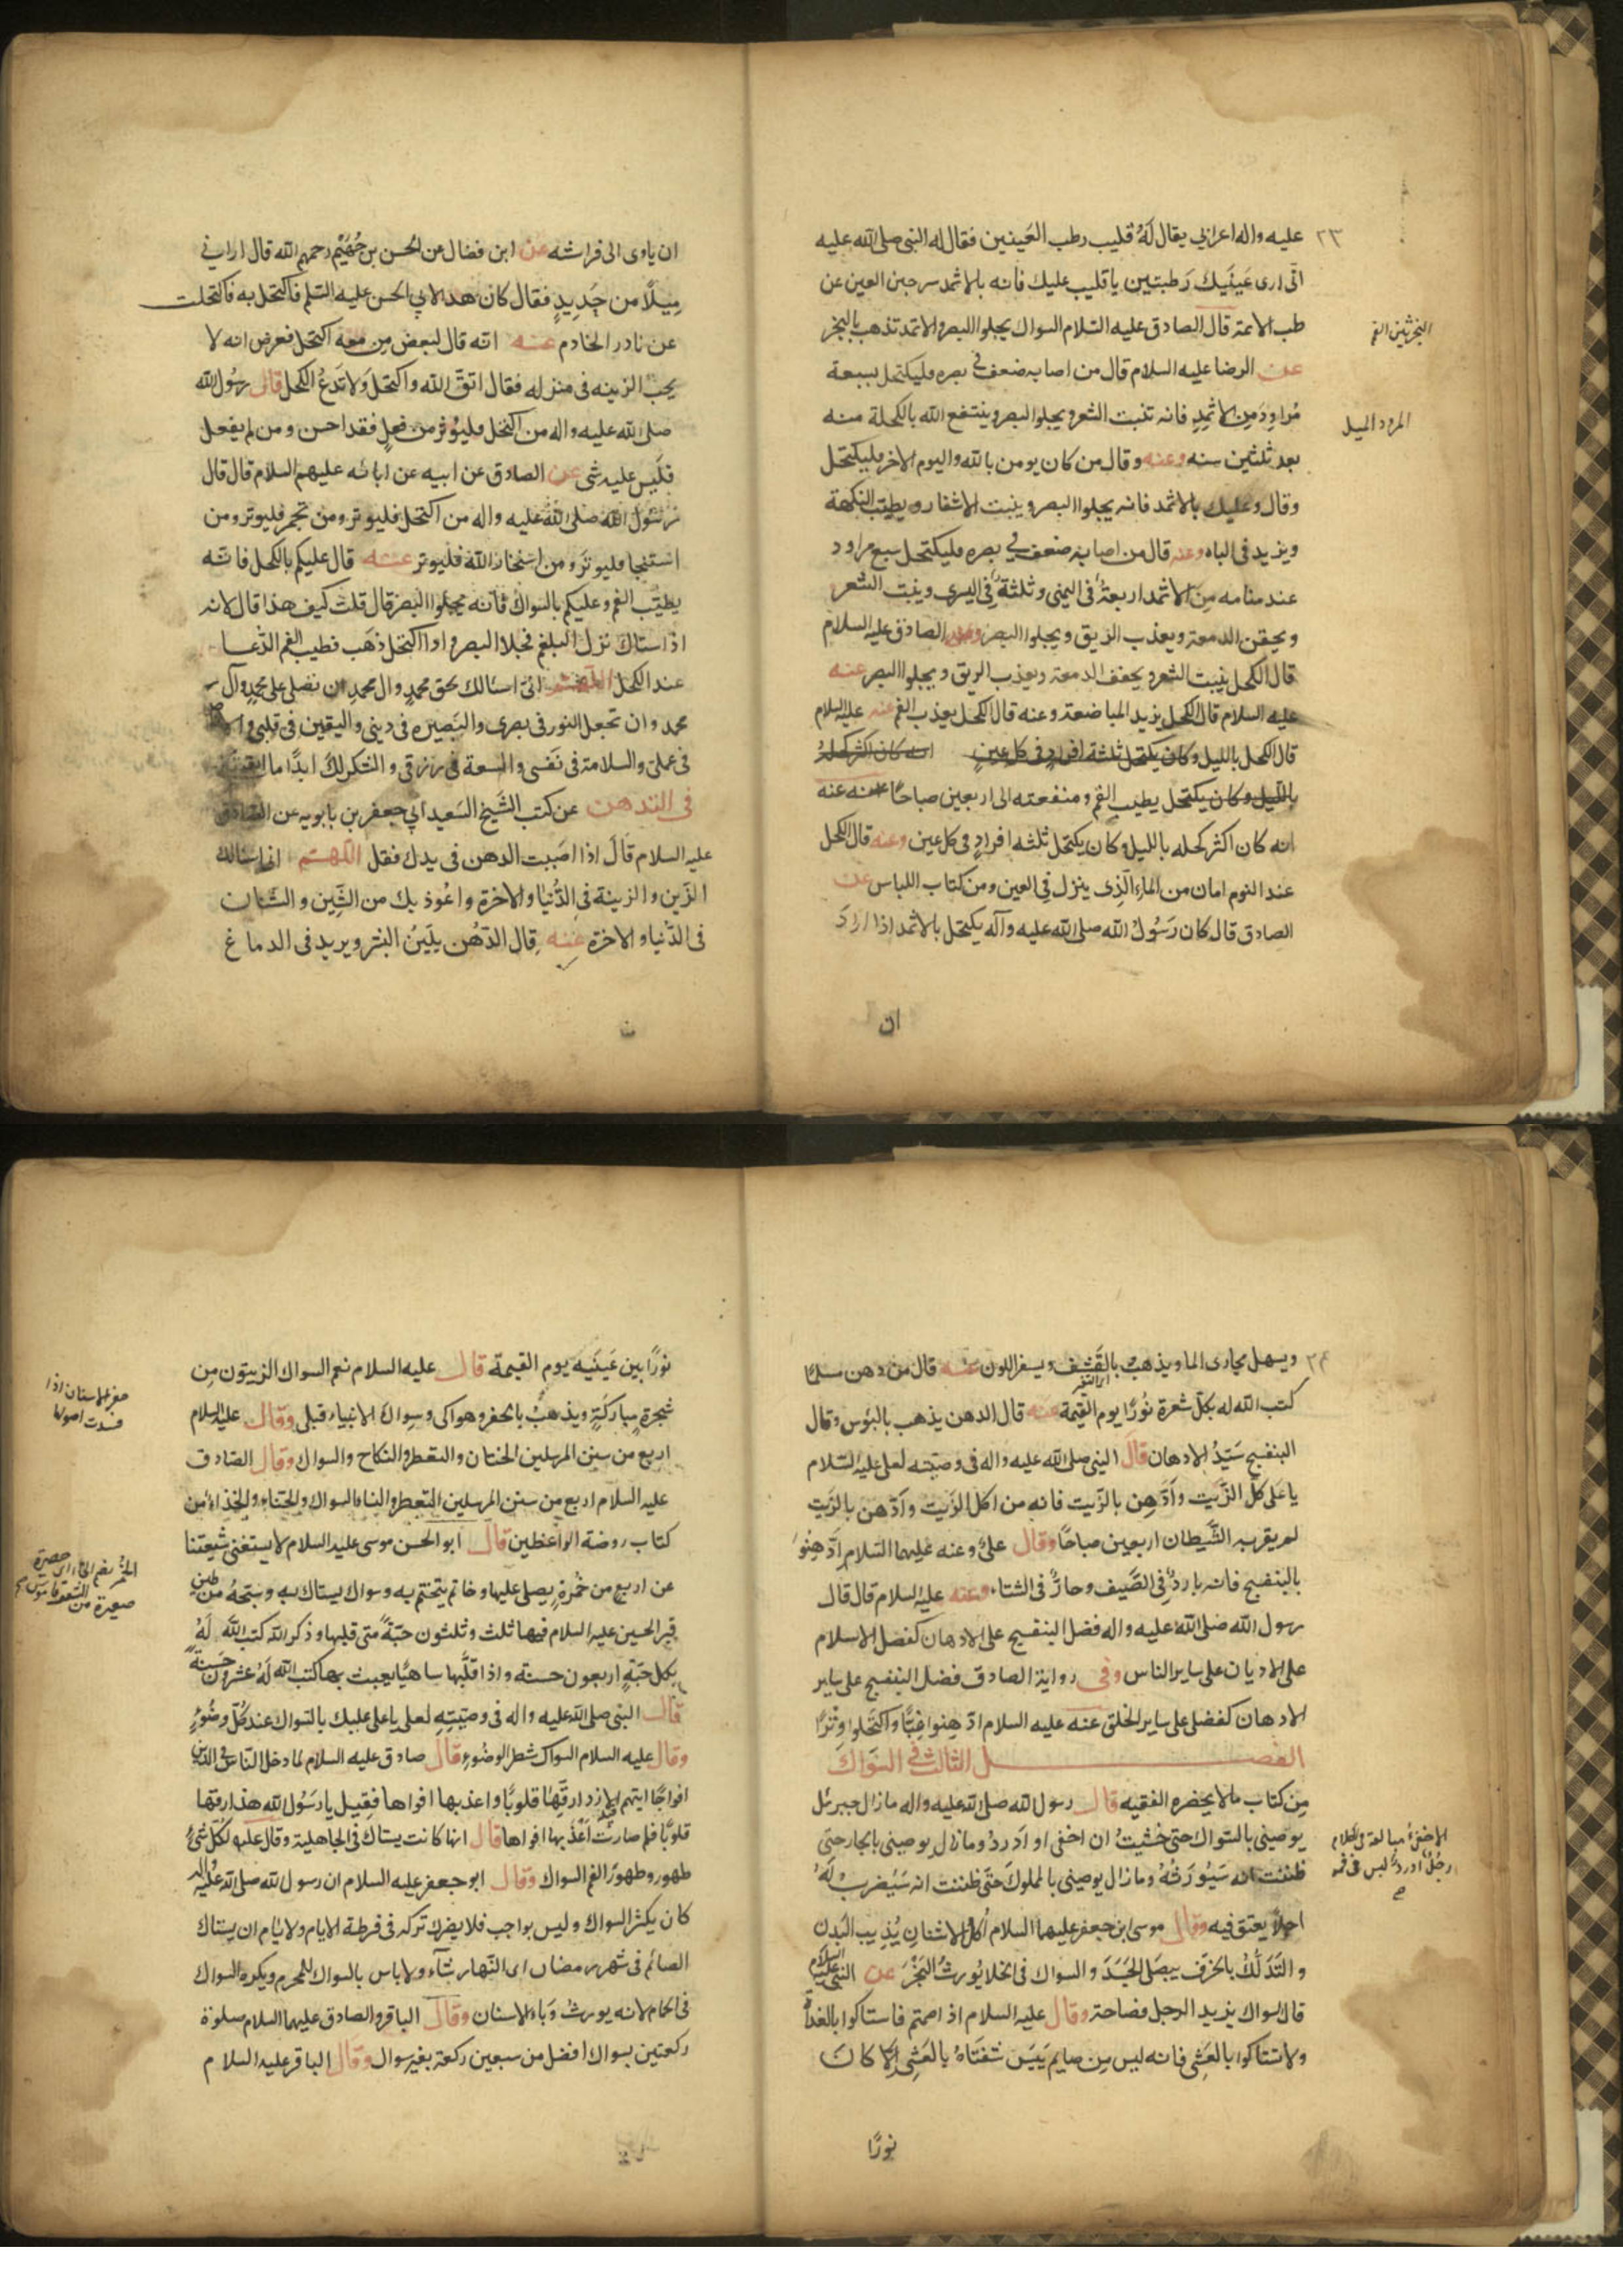 ٢٣
عليه واله اعرابي يقال له قليب رطب العينين فقال له النبي صلى الله عليه
اني ارى عينيك رطبتين يا قليب عليك فانه بالاثمد سرجين العين عن
طب الائمة قال الصادق عليه السلام السواك يجلوا البصر والاثمد تذهب بالبخر
عن الرضا عليه السلام قال من اصابه ضعف في بصره فليكتحل بسبعة
مراود من الاثمد فانه تنبت الشعر ويجلوا البصر وينتفع الله بالكحلة منه
بعد ثلثين سنه وعنه وقال من كان يومن بالله واليوم الاخر فليكتحل
وقال وعليك بالاثمد فانه يجلوا البصر وينبت الاشفار ويطيب النكهة
ويزيد في الباه وعنه قال من اصابه ضعف في بصره فليكتحل سبع مراود
عند منامه من الاثمد اربعة في اليمنى وثلثة في اليسرى وينبت الشعر
ويحقن الدمعة ويعذب الريق ويجلوا البصر وعن الصادق عليه السلام
قال الكحل ينبت الشعر ويجفف الدمعة ويعذب الريق ويجلوا البصر عنه
عليه السلام قال الكحل يزيد المباضعة وعنه قال الكحل يعذب الفم عنه عليه السلام
قال الكحل بالليل وكان يكتحل ثلثة افراد في كل عين انه كان اكثر كحله
بالليل وكان يكتحل يطيب الفم ومنفعته الى اربعين صباحا عنه عنه
انه كان اكثر كحله بالليل وكان يكتحل ثلثه افراد في كل عين وعنه قال الكحل
عند النوم امان من الماء الذي ينزل في العين ومن كتاب اللباس عن
الصادق قال كان رسول الله صلى الله عليه وآله يكتحل بالاثمد اذا اراد
ان
المرود الميل
ان ياوى الى فراشه عن ابن فضال عن الحسن بن جهيم رحمهم الله قال اراني
ميلا من حديد فقال كان هذا لابي الحسن عليه السلم فاكتحل به فاكتحلت
عن نادر الخادم عنه انه قال لبعض من معه اكتحل فعرض انه لا
يحب الزينه في منزله فقال اتق الله واكتحل ولا تدع الكحل قال رسول الله
صلى الله عليه واله من اكتحل فليوثر من فعل فقد احسن ومن لم يفعل
فليس عليه شى عن الصادق عن ابيه عن ابائه عليهم السلام قال قال
رسول الله صلى الله عليه واله من اكتحل فليوتر ومن تجمر فليوتر ومن
استنجا فليوتر ومن استخار الله فليوتر عنه قال عليكم بالكحل فانه
يطيب الفم وعليكم بالسواك فانه يجلوا البصر قال قلت كيف هذا قال لانه
اذا ستاك نزل البلغم فجلا البصر واذا اكتحل ذهب فطيب الفم الدعا
عند الكحل اللهم انى اسئالك بحق محمد وال محمد ان تصلى على محمد وآل
محمد وان تجعل النور في بصرى والبصيره في دينى واليقين في قلبى والاخلاص
فى عملى والسلامة فى نفسى والسعة فى رزقى والشكر لك ابدا ما ابقيتنى
فى التدهن عن كتب الشيخ السعيد ابي جعفر بن بابويه عن الصادق
عليه السلام قال اذا اصببت الدهن في يدك فقل اللهم انى اسئالك
الزين والزينة في الدنيا والاخرة واعوذ بك من الشين والشنان
فى الدنيا والاخرة عنه قال الدهن يلين البشر ويزيد فى الدماغ
٢٤
ويسهل مجارى الماء ويذهب بالقشف ويسفر اللون عنه قال من دهن مسلما
كتب الله له بكل شعرة نورا يوم القيمة عنه قال الدهن يذهب بالبوس وقال
البنفسج سيد الادهان قال النبي صلى الله عليه واله في وصيته لعلى عليه السلام
يا على كل الزيت وادهن بالزيت فانه من اكل الزيت وادهن بالزيت
لم يقربه الشيطان اربعين صباحا وقال على وعنه عليهما السلام ادهنوا
بالبنفسج فانه بارد في الصيف وحار في الشتاء وعنه عليه السلام قال قال
رسول الله صلى الله عليه واله فضل البنفسج على الادهان كفضل الاسلام
على الاديان على ساير الناس وفى رواية الصادق فضل البنفسج على ساير
الادهان كفضلى على ساير الخلق عنه عليه السلام ادهنوا غبا واكتحلوا وترا
الفصل الثالث في السواك
من كتاب مالا يحضره الفقيه قال رسول لله صلى الله عليه واله ما زال جبرئل
يوصينى بالسواك حتى خشيت ان احفى او ادرد وما زال يوصينى بالجار حتى
ظننت انه سيورثه وما زال يوصينى بالمملوك حتى ظننت انه سيضرب له
اجلا يعتق فيه وقال موسى ابن جعفر عليهما السلام اكل الاشنان يذيب البدن
والتدلك بالخزف يبصلى الجسد والسواك فى الخلا يورث البخر عن النبي عليه السلام
قال سواك يزيد الرجل فصاحة وقال عليه السلام اذا صمتم فاستاكوا بالغداة
ولا تستاكوا بالعشى فانه ليس من صايم يبس شفتاه بالعشى الا كان
نورا
نورا بين عينيه يوم القيمة قال عليه السلام نعم السواك الزيتون من
شجرة مباركة ويذهب بالحفر وهو اكى وسواك الانبياء قبلى وقال عليه السلام
اربع من سنن المرسلين الختان والتعطر والنكاح والسواك وقال الصادق
عليه السلام اربع من سنن المرسلين التعطر والنساء والسواك والحناء والخذاء من
كتاب روضة الواعظين قال ابو الحسن موسى عليه السلام لا يستغنى شيعتنا
عن اربع من خمرة يصلى عليها وخاتم يتختم به وسواك يستاك به وسبحة من طين
قبر الحسين عليه السلام فيها ثلث وثلثون حبة متى قلبها وذكر الله كتب الله له
بكل حبة اربعون حسنة واذا قلبها ساهيا يعبث بها كتب الله له عشرون حسنة
قال النبى صلى الله عليه واله فى وصيته لعلى يا على عليك بالسواك عند كل وضوء
وقال عليه السلام السواك شطر الوضوء قال صادق عليه السلام لما دخل الناس في الدين
افواجا ايتهم الازد ارقها قلوبا واعذبها افواها فقيل يا رسول لله هذا ارقها
قلوبا فلم صارت اعذبها افواها قال انها كانت يستاك في الجاهلية وقال عليه لكل شئ
طهور وطهور الفم السواك وقال ابو جعفر عليه السلام ان رسول لله صلى الله عليه واله
كان يكثر السواك وليس بواجب فلا يضرك تركه فى فرطة الايام ولا باس ان يستاك
الصائم فى شهر رمضان اى النهار شاء ولا باس بالسواك للمحرم ويكره السواك
فى الحمام لانه يورث وباء الاسنان وقال الباقر والصادق عليهما السلام صلوة
ركعتين بسواك افضل من سبعين ركعة بغير سواك وقال الباقر عليه السلام